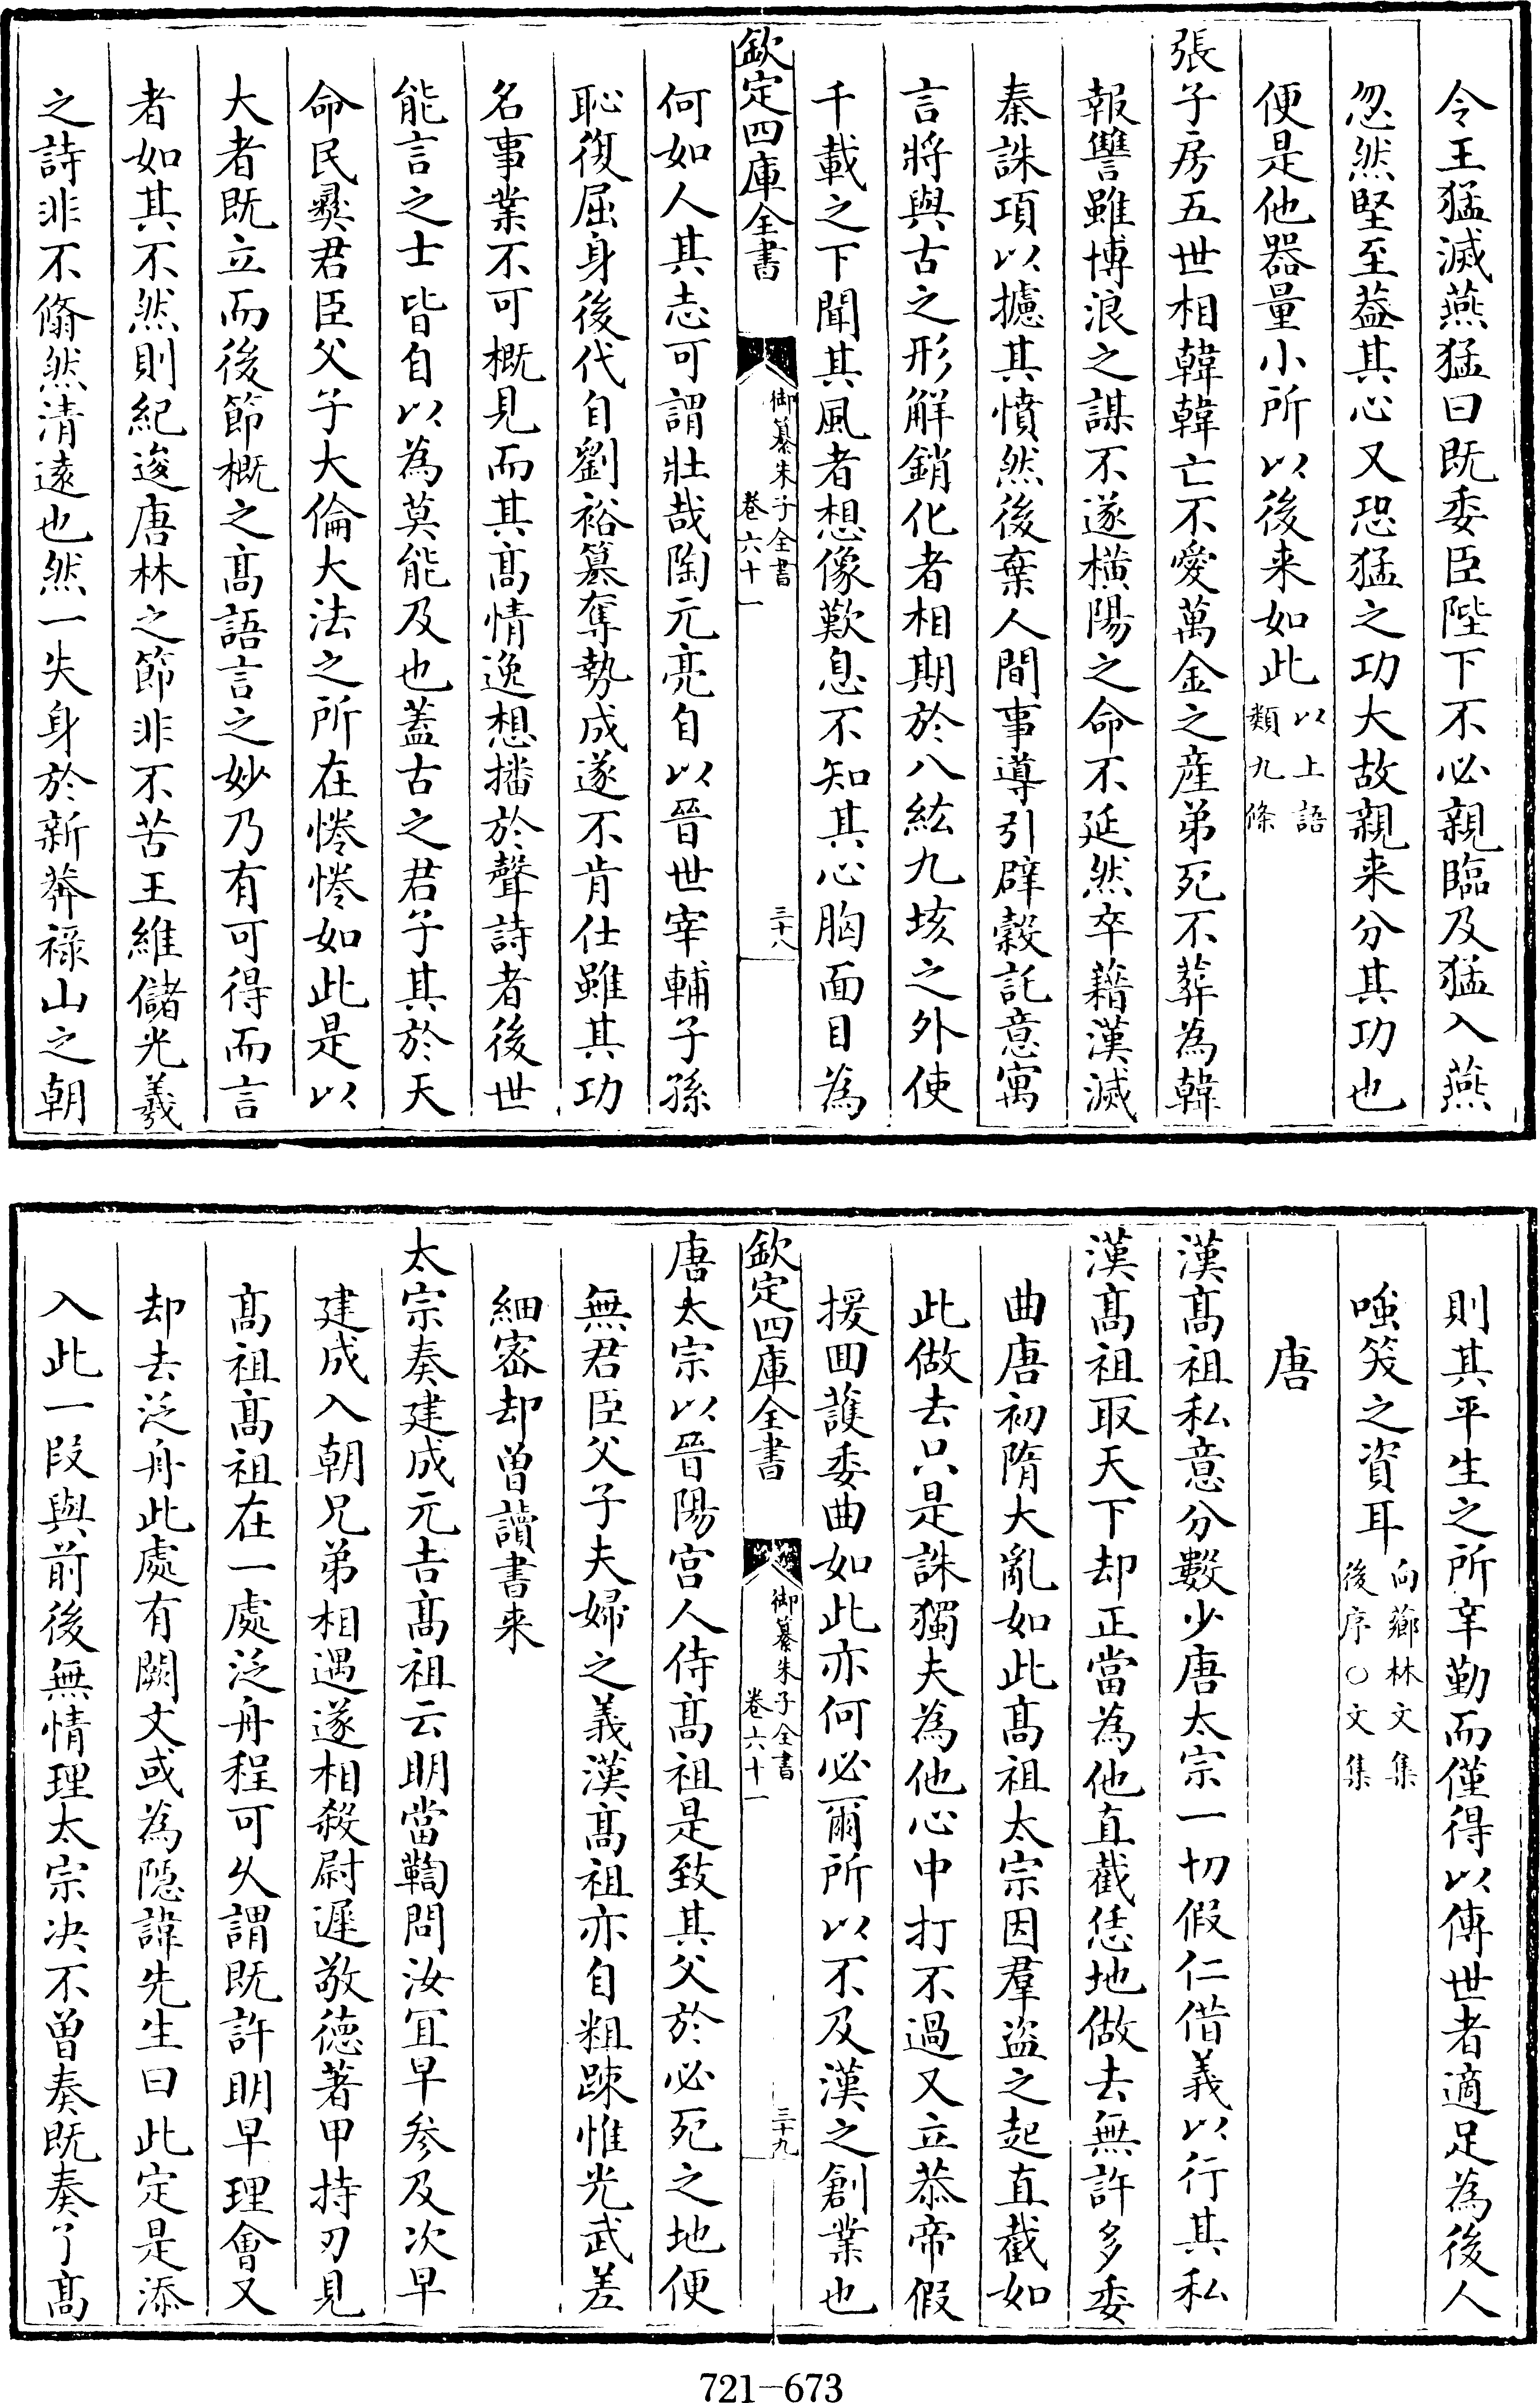 令王猛滅燕猛曰既委臣陛下不必親臨及猛入燕
忽然堅至葢其心又恐猛之功大故親来分其功也
便是他器量小所以後来如此以上語類九條
張子房五世相韓韓亡不愛萬金之産弟死不葬為韓
報讐雖博浪之謀不遂橫陽之命不延然卒藉漢滅
秦誅項以攄其憤然後棄人間事導引辟穀託意寓
言將與古之形解銷化者相期於八紘九垓之外使
千載之下聞其風者想像歎息不知其心胸面目為
欽定四庫全書 御纂朱子全書 卷六十一 三十八
何如人其志可謂壯哉陶元亮自以晉世宰輔子孫
恥復屈身後代自劉裕簒奪勢成遂不肯仕雖其功
名事業不可概見而其髙情逸想播於聲詩者後世
能言之士皆自以為莫能及也蓋古之君子其於天
命民彛君臣父子大倫大法之所在惓惓如此是以
大者既立而後節概之髙語言之妙乃有可得而言
者如其不然則紀逡唐林之節非不苦王維儲光羲
之詩非不翛然清逺也然一失身於新莽祿山之朝
則其平生之所辛勤而僅得以傳世者適足為後人
嗤笑之資耳向薌林文集後序○文集
唐
漢髙祖私意分數少唐太宗一切假仁借義以行其私
漢髙祖取天下却正當為他直截恁地做去無許多委
曲唐初隋大亂如此髙祖太宗因羣盜之起直截如
此做去只是誅獨夫為他心中打不過又立恭帝假
援回護委曲如此亦何必爾所以不及漢之創業也
欽定四庫全書 御纂朱子全書 卷六十一 三十九
唐太宗以晉陽宫人侍髙祖是致其父於必死之地便
無君臣父子夫婦之義漢髙祖亦自粗踈惟光武差
細宻却曽讀書来
太宗奏建成元吉髙祖云明當鞫問汝冝早参及次早
建成入朝兄弟相遇遂相殺尉遲敬德著甲持刃見
髙祖髙祖在一處泛舟程可久謂既許明早理會又
却去泛舟此處有闕文或為隠諱先生曰此定是添
入此一段與前後無情理太宗决不曽奏既奏了髙
721-673